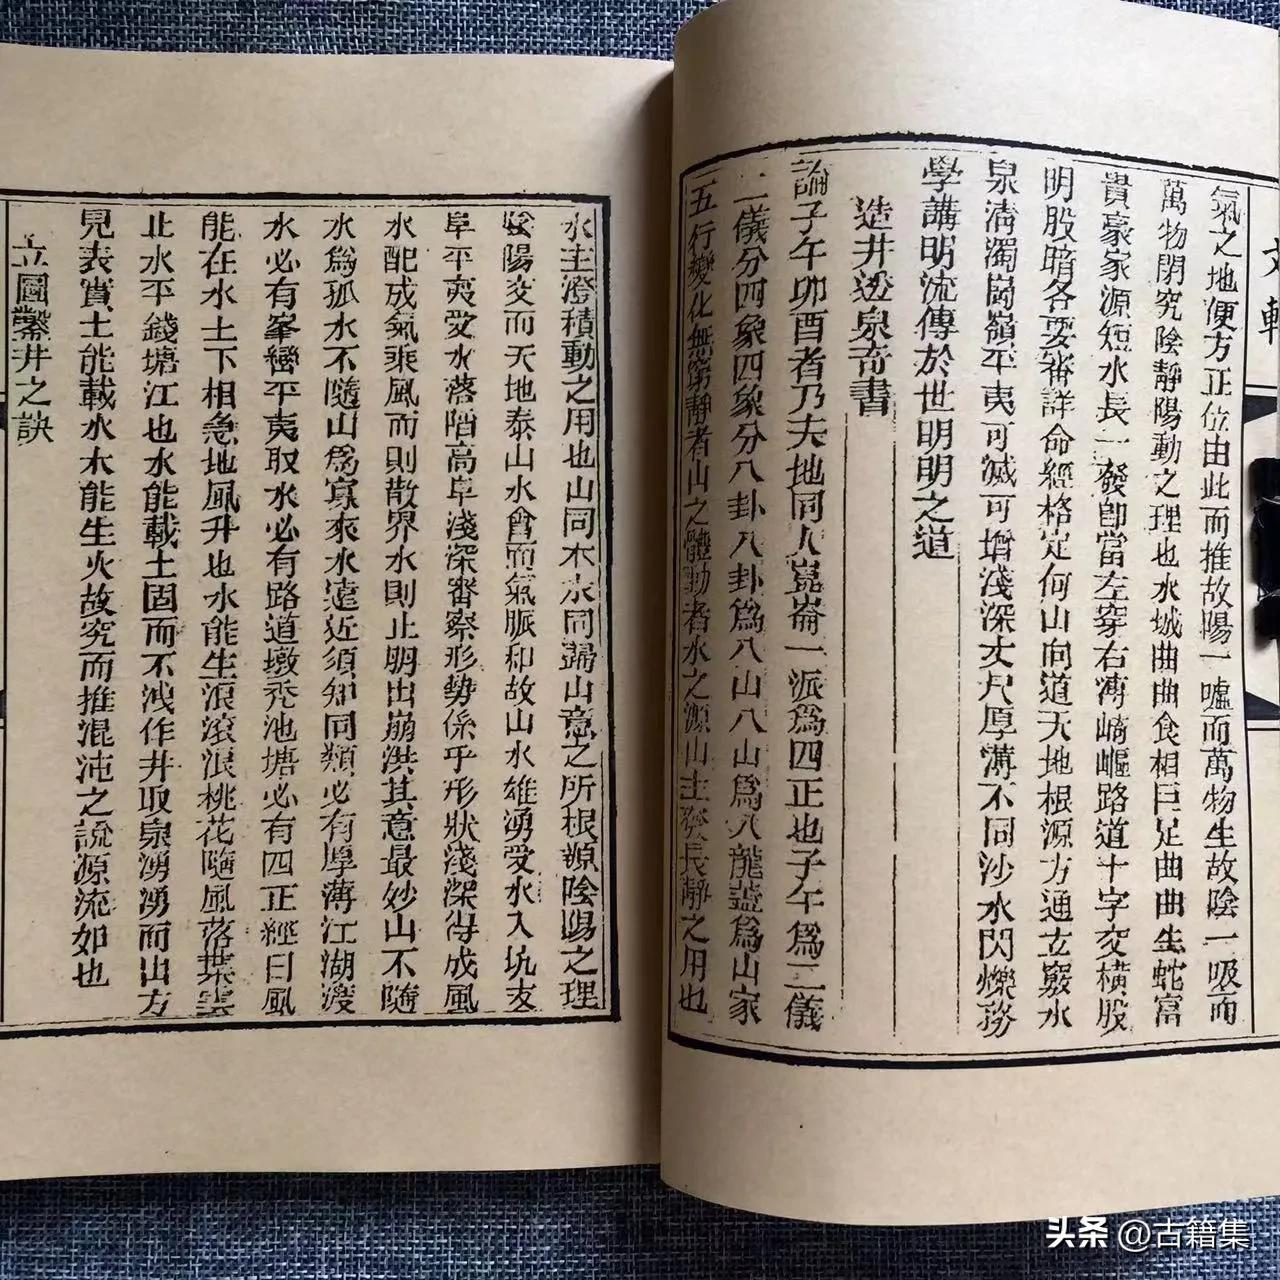 文軒
氣之地便方正位由此而推故陽一噓而萬物生故陰一吸而
萬物閉究陰靜陽動之理也水城曲曲食相巨足曲曲生蛇富
貴豪家源短水長一發卽當左穿右漙崎嶇路道十字交橫股
明股暗各要審詳命經格定何山向道天地根源方通立竅水
泉淸濁崗嶺平夷可滅可增淺深丈尺厚溥不同沙水閃爍務
學講明流傳於世明明之道
造井透泉奇書
論子午卯酉者乃夫地同人崑崙一派爲四正也子午爲二儀
二儀分四象四象分八卦八卦爲八山八山爲八龍葢爲山家
五行變化無窮靜者山之體動者水之源山主發長靜之用也
水主澄積動之用也山同木水同歸山意之所根源陰陽之理
陰陽交而天地泰山水會而氣脈和故山水雄湧受水入坑支
阜平夷受水落陷高阜淺深審察形勢係乎形狀淺深得成風
水配成氣乘風而則散界水則止朙出崩洪其意最妙山不隨
水爲孤水不隨山爲寡來水遠近須知同類必有厚溥江湖溲
水必有峯巒平夷取水必有路道墩禿池塘必有四正經曰風
能在水土下相急地風升也水能生浪滚浪桃花隨風落葉雲
止水平錢塘江也水能載土固而不洩作井取泉湧湧而出方
見表實土能載水木能生火故究而推混沌之說源流如也
立圖鑿井之訣
头条 @古籍集